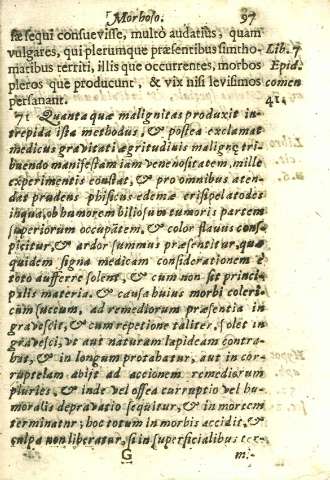 Morboso. 97
sæ sequi consuevisse, multò audatius, quam
vulgares, qui plerumque præsentibus simtho- Lib. 7
matibus territi, illis que occurrentes, morbos Epid.
pleros que producunt, & vix nisi levisimos comen
persanant. 41.
71 Quanta quæ malignitas produxit in-
trepida ista methodus, & postea exclamat
medicus gravitati ægritudiuis maligne tri-
buendo manifestam iam venenositatem, mille
experimentis coustat, & pro omnibus aten-
dat prudens phisicus edemæ erisipelatodes
inqua, ob humorem biliosum tumoris partem
superiorum occupatem, & color flauus cons-
picitur, & ardor summus præsentitur, quæ
quidem signa medicam considerationem è
toto aufferre solent, & cum non sit princi-
palis materia, & causa huius morbi coleri-
cum succum, ad remediorum præsentia in
gravescit, & cum repetione taliter, solet in
gravesci, vt aut naturam lapideam contra-
bat, & in longum protabatur, aut in cor-
ruptelam abijt ad actionem remediorum
pluries, & inde vel ossea curruptio vel hu-
moralis depravatio sequitur, & in mortem
terminatur; hoc totum in morbis accidit, &
culpa non liberatur, si in superficialibus ter-
G m.